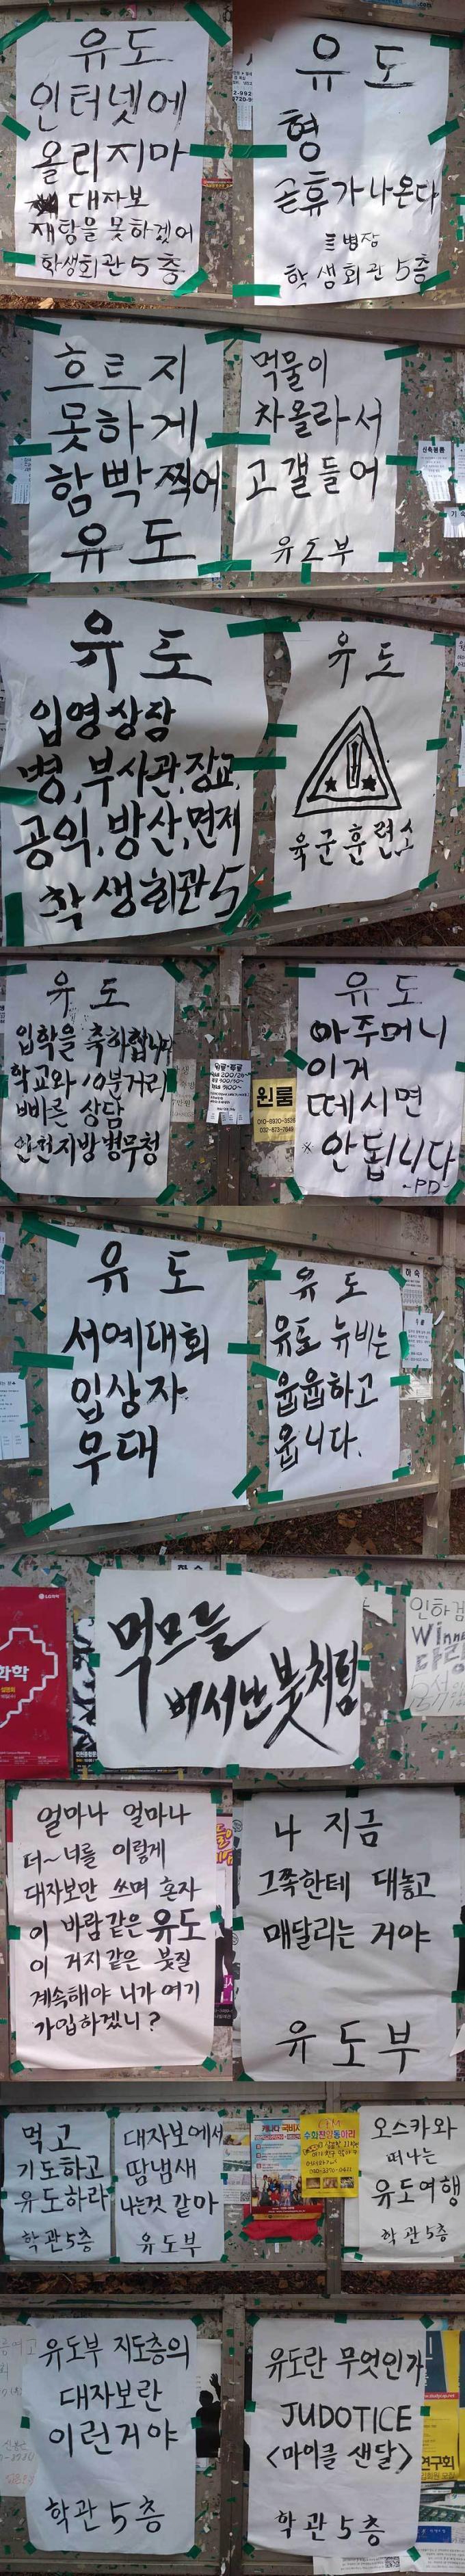 유도
인터넷에
올리지마
대자보
재탕을 못하겠어
학생회관 5층
유도
형
곧휴가나온다
병장
학생회관 5층
흐트지
못하게
함빡 찍어
유도
먹물이
차올라서
고갤들어
유도부
유도
입영상담
병, 부사관, 장교,
공익, 방산, 면제
학생회관 5
유도
육군훈련소
유도
입학을 축하합니다
학교와 10분거리
빠른 상담
인천지방병무청
원룸
유도
아주머니
이거
떼시면
※ 안됩니다
-PD-
유도
서예대회
입상자
우대
유도
유도 뉴비는
웁웁하고
웁니다.
먹므를
벼서난 붓처럼
화학
인하검
얼마나 얼마나
더~ 너를 이렇게
대자보만 쓰며 혼자
이 바람같은 유도
이 거지같은 붓질
계속해야 니가 여기
가입하겠니?
나 지금
그쪽한테 대놓고
매달리는 거야
유도부
먹고
기도하고
유도하라
학관 5층
대자보에서
땀냄새
나는것 같아
유도부
오스카와
떠나는
유도여행
학관 5층
유도부 지도층의
대자보란
이런거야
학관 5층
유도란 무엇인가
JUDOTICE
<마이클 샌달>
학관 5층
연구회